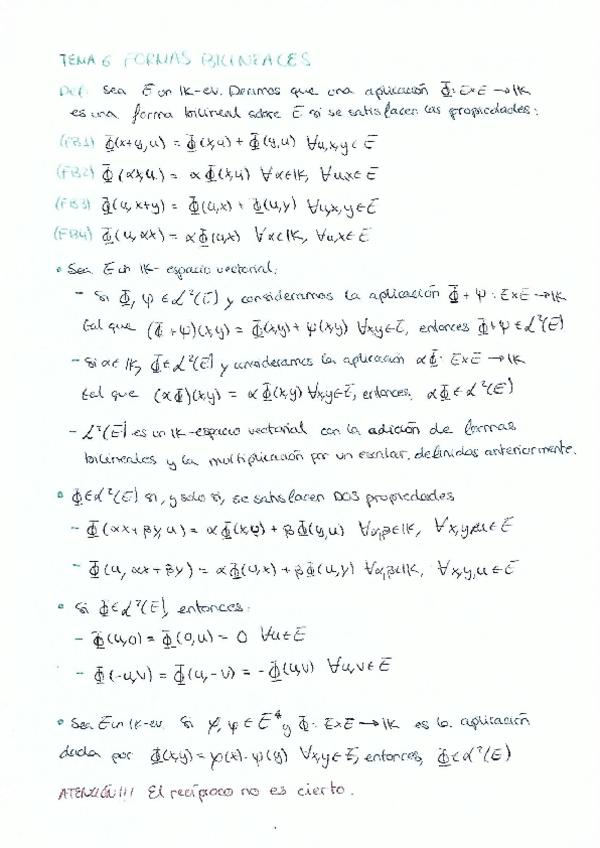 TEMA 6 FORMAS BILINEALES
Def: Sea E un IK-ev. Diremos que una aplicación Φ: E×E → IK
es una forma bilineal sobre E si se satisfacen las propiedades:
(FB1) Φ(x+y,u) = Φ(x,u) + Φ(y,u) ∀u,x,y∈E
(FB2) Φ(αx,u) = αΦ(x,u) ∀α∈IK, ∀u,x∈E
(FB3) Φ(u,x+y) = Φ(u,x) + Φ(u,y) ∀u,x,y∈E
(FB4) Φ(u,αx) = αΦ(u,x) ∀α∈IK, ∀u,x∈E
• Sea E un IK-espacio vectorial:
- Si Φ, Ψ ∈ L²(E) y consideramos la aplicación Φ+Ψ: E×E → IK
tal que (Φ+Ψ)(x,y) = Φ(x,y) + Ψ(x,y) ∀x,y∈E, entonces Φ+Ψ ∈ L²(E)
- Si α∈IK, Φ∈L²(E) y consideramos la aplicación αΦ: E×E → IK
tal que (αΦ)(x,y) = αΦ(x,y) ∀x,y∈E, entonces, αΦ ∈ L²(E)
- L²(E) es un IK-espacio vectorial con la adición de formas
bilineales y la multiplicación por un escalar, definidas anteriormente.
• Φ∈L²(E) si, y solo si, se satisfacen DOS propiedades
- Φ(αx+βy,u) = αΦ(x,u) + βΦ(y,u) ∀α,β∈IK, ∀x,y,u∈E
- Φ(u,αx+βy) = αΦ(u,x) + βΦ(u,y) ∀α,β∈IK, ∀x,y,u∈E
• Si Φ∈L²(E), entonces:
- Φ(u,0) = Φ(0,u) = 0 ∀u∈E
- Φ(-u,v) = Φ(u,-v) = -Φ(u,v) ∀u,v∈E
• Sea E un IK-ev. Si φ, ψ ∈ E* y Φ: E×E → IK es la aplicación
dada por Φ(x,y) = φ(x)·ψ(y) ∀x,y∈E, entonces, Φ∈L²(E)
ATENCIÓN!!! El recíproco no es cierto.